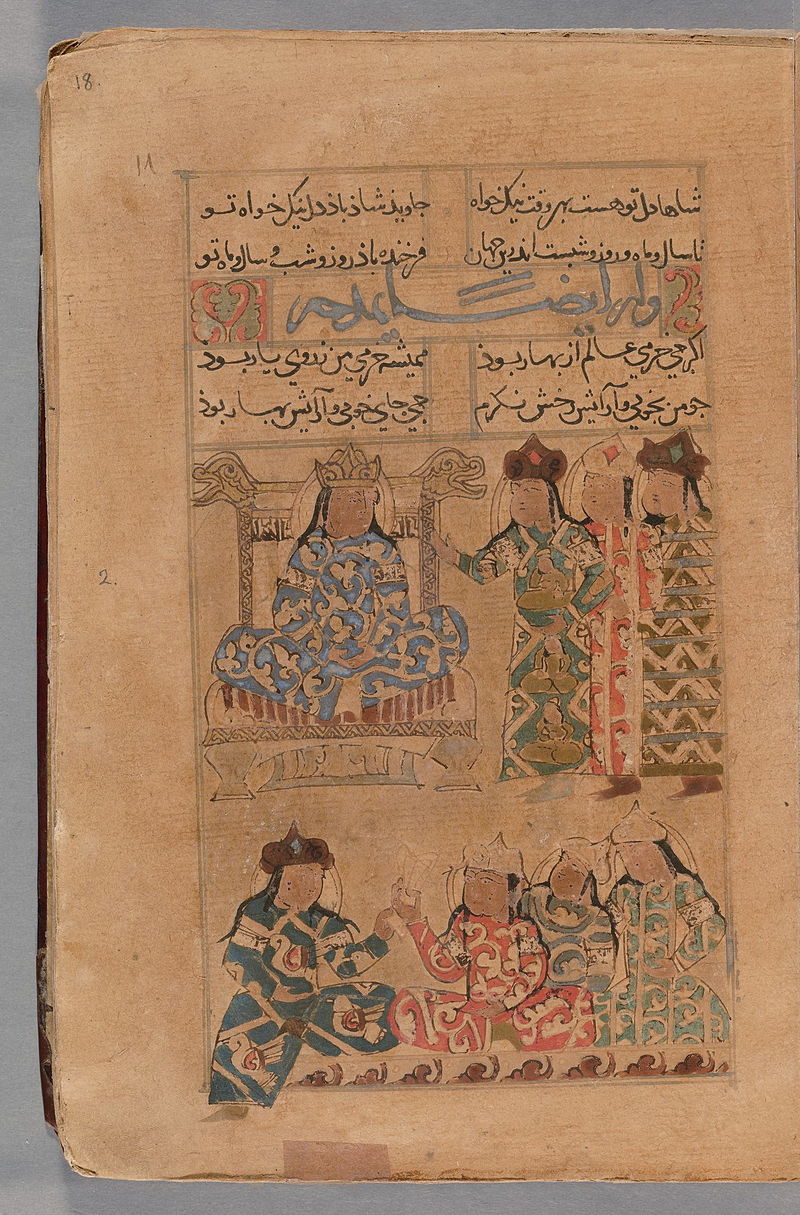 18.
11
شاها دل تو هست بهر وقت نیکخواه جاوید شاد باذ دل نیکخواه تو
تا سال و ماه و روز و شبست اندرین جهان فرخنده باذ روز و شب و سال و ماه تو
وله ایضا یمدحه
اکر جی خرمی عالم از بهار بوذ همیشه خرمی من ز روی یار بوذ
جو من بخوبی و آرایش رخش نکرم جی جای خوبی و آرایش بهار بوذ
2.